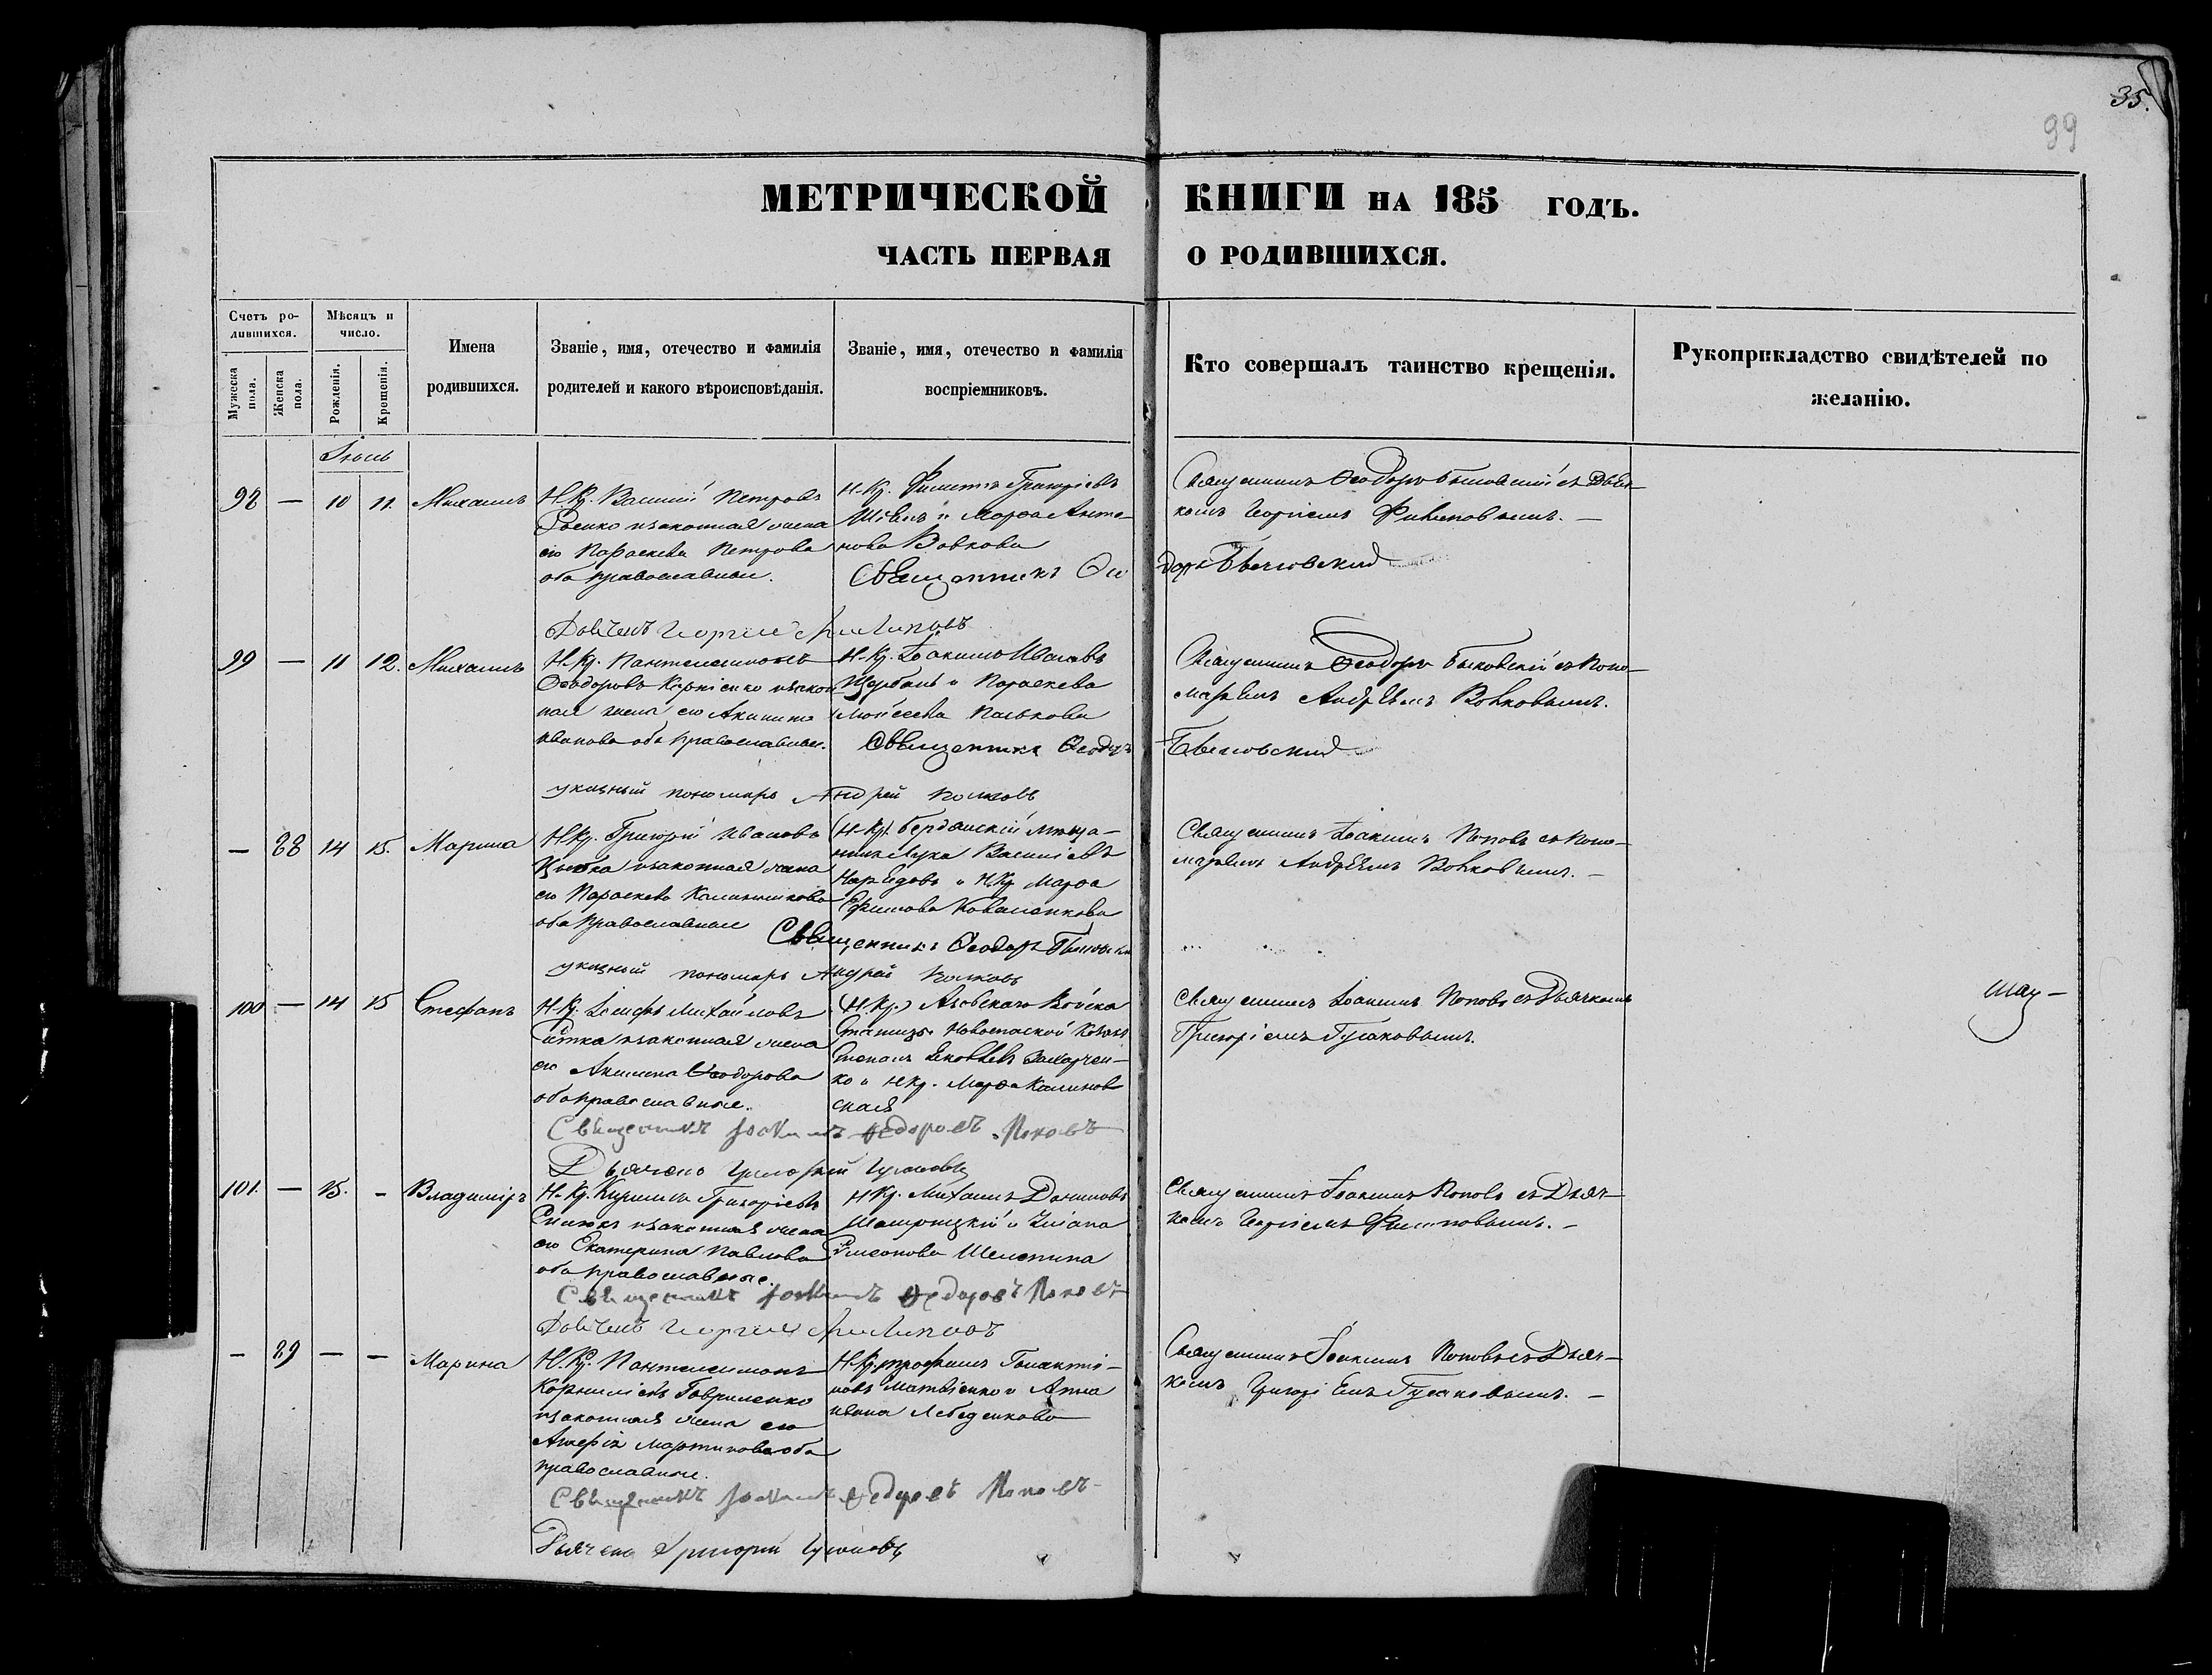 35.
99
МЕТРИЧЕСКОЙ КНИГИ НА 185 ГОДЪ.
ЧАСТЬ ПЕРВАЯ О РОДИВШИХСЯ.
Счетъ ро-
дившихся.
Мужеска
пола.
Женска
пола.
Мѣсяцъ и
число.
Рожденія.
Крещенія.
Имена
родившихся.
Званіе, имя, отечество и фамилія
родителей и какого вѣроисповѣданія.
Званіе, имя, отечество и фамилія
воспріемниковъ.
Кто совершалъ таинство крещенія.
Рукоприкладство свидѣтелей по
желанію.
98 — 10 11. Михаилъ
Н. Кр. Василій Петровъ
законная жена
его Параскева Петрова
оба православные.
Н. Кр. Филиппъ Григорьевъ
и Марфа Анто-
нова Вовкова
Священникъ Ѳеодоръ Быковскій съ Дьяч-
комъ Георгіемъ Филиповымъ. —
Священникъ Ѳео
доръ Быковскій
Дьячекъ Георгий Филиповъ
99 — 11 12. Михаилъ
Н. Кр. Пантелеимонъ
Ѳеодоровъ Корніенко и закон
ная жена его Акилина
Иванова оба православные.
Н. Кр. Іоакимъ Ивановъ
Щербань и Параскева
Моисеева Панькова
Священникъ Ѳеодоръ Быковскій съ Поно-
маремъ Андреемъ Волковымъ.
Священникъ Ѳеодоръ
Быковский
указный пономарь Андрей Волковъ
— 88 14 15. Марина
Н. Кр. Григорій Ивановъ
и законная жена
его Параскева Калиникова
оба православные
(Н. Кр.) Бердянскій мѣща-
нинъ Лука Василіевъ
и Н. Кр. Марфа
Ефимова Коваленкова
Священникъ Іоакимъ Поповъ съ Поно-
маремъ Андреемъ Волковымъ. —
Священникъ Ѳеодоръ Быковскій
указный пономарь Андрей Волковъ
100 — 14 15 Стефанъ
Н. Кр. Іосифъ Михайловъ
и законная жена
его Акилина Ѳеодорова
оба православные.
(Н. Кр.) Азовскаго Войска
Станицы Новоспаской Козакъ
Степанъ Яковлевъ Захарчен-
ко и Н. Кр. Марфа Калинов
ская
Священникъ Іоакимъ Поповъ съ Дьячкомъ
Григоріемъ Гусаковымъ.
Священникъ Іоакимъ Федоровъ Поповъ
Дьячекъ Григорий Гусаковъ
101. — 15. - Владиміръ
Н. Кр. Кирилъ Григоріевъ
и законная жена
его Екатерина Павлова
оба православные.
Н. Кр. Михаилъ Даниловъ
и Уліана
Симеонова
Священникъ Іоакимъ Поповъ съ Дьяч-
комъ Георгіемъ Филиповымъ. —
Священникъ Іоакимъ Федоровъ Поповъ
Дьячекъ Георгий Филиповъ
— 89 — — Марина
Н. Кр. Пантелеимонъ
Корниліевъ Гавриленко
и законная жена его
Мартинова оба
православные.
Н. Кр. Трофимъ Галактіо-
новъ Матвіенко и Анна
Ивана Лебеденкова
Священникъ Іоакимъ Поповъ съ Дьяч-
комъ Григоріемъ Гусаковымъ. —
Священникъ Іоакимъ Федоровъ Поповъ
Дьячекъ Григорий Гусаковъ